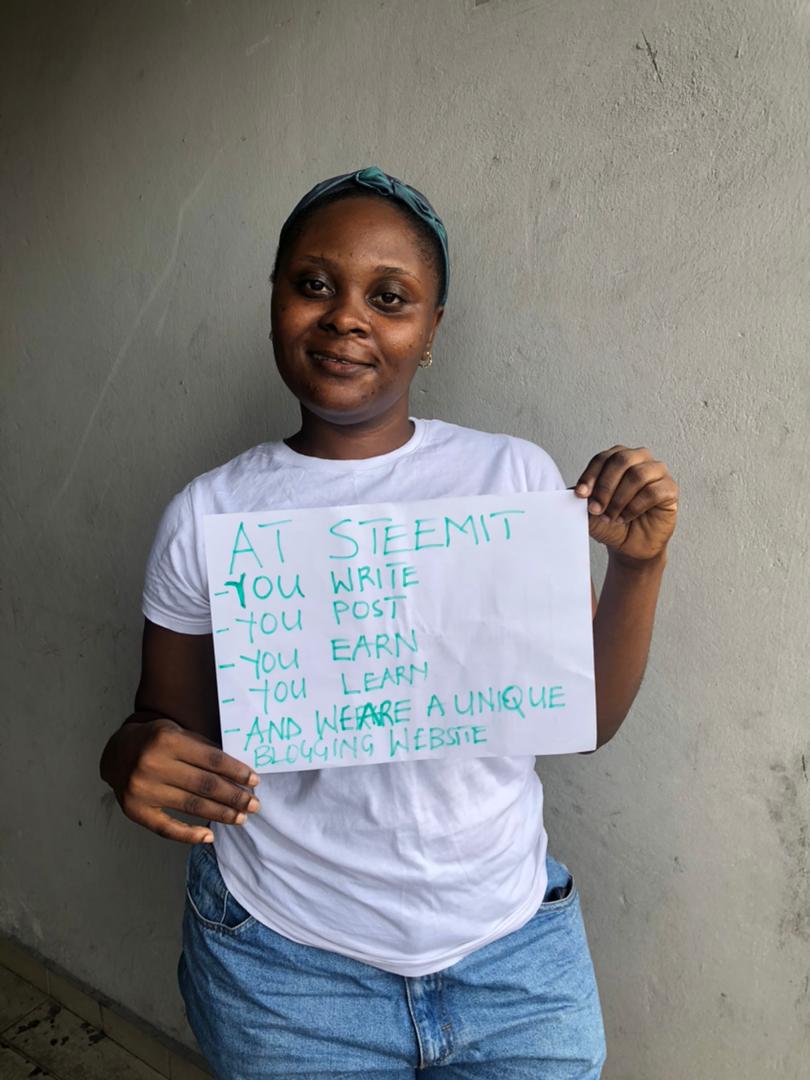 AT STEEMIT
-YOU WRITE
-YOU POST
-YOU EARN
-YOU LEARN
-AND WE ARE A UNIQUE
BLOGGING WEBSITE